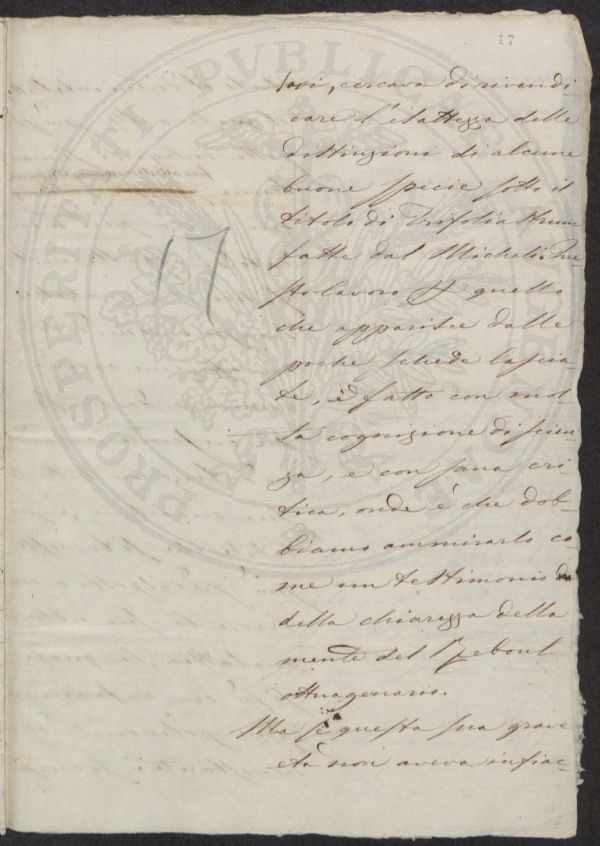 17
sori, cercava di rivendi
care l'esattezza delle
distinzioni di alcune
buone specie sotto il
titolo di Trifoliastrum
fatte dal Micheli. Que
sto lavoro quello
che apparisce dalle
poche schede lascia
te, è fatto con mol
ta cognizione di scien
za, e con sana cri
tica, onde è che dob-
biamo ammirarlo co-
me un testimonio
della chiarezza della
mente del Reboul
ottuagenario.
Ma se questa sua grave
età non aveva infiac-
17
PROSPERITATI PUBLICAE